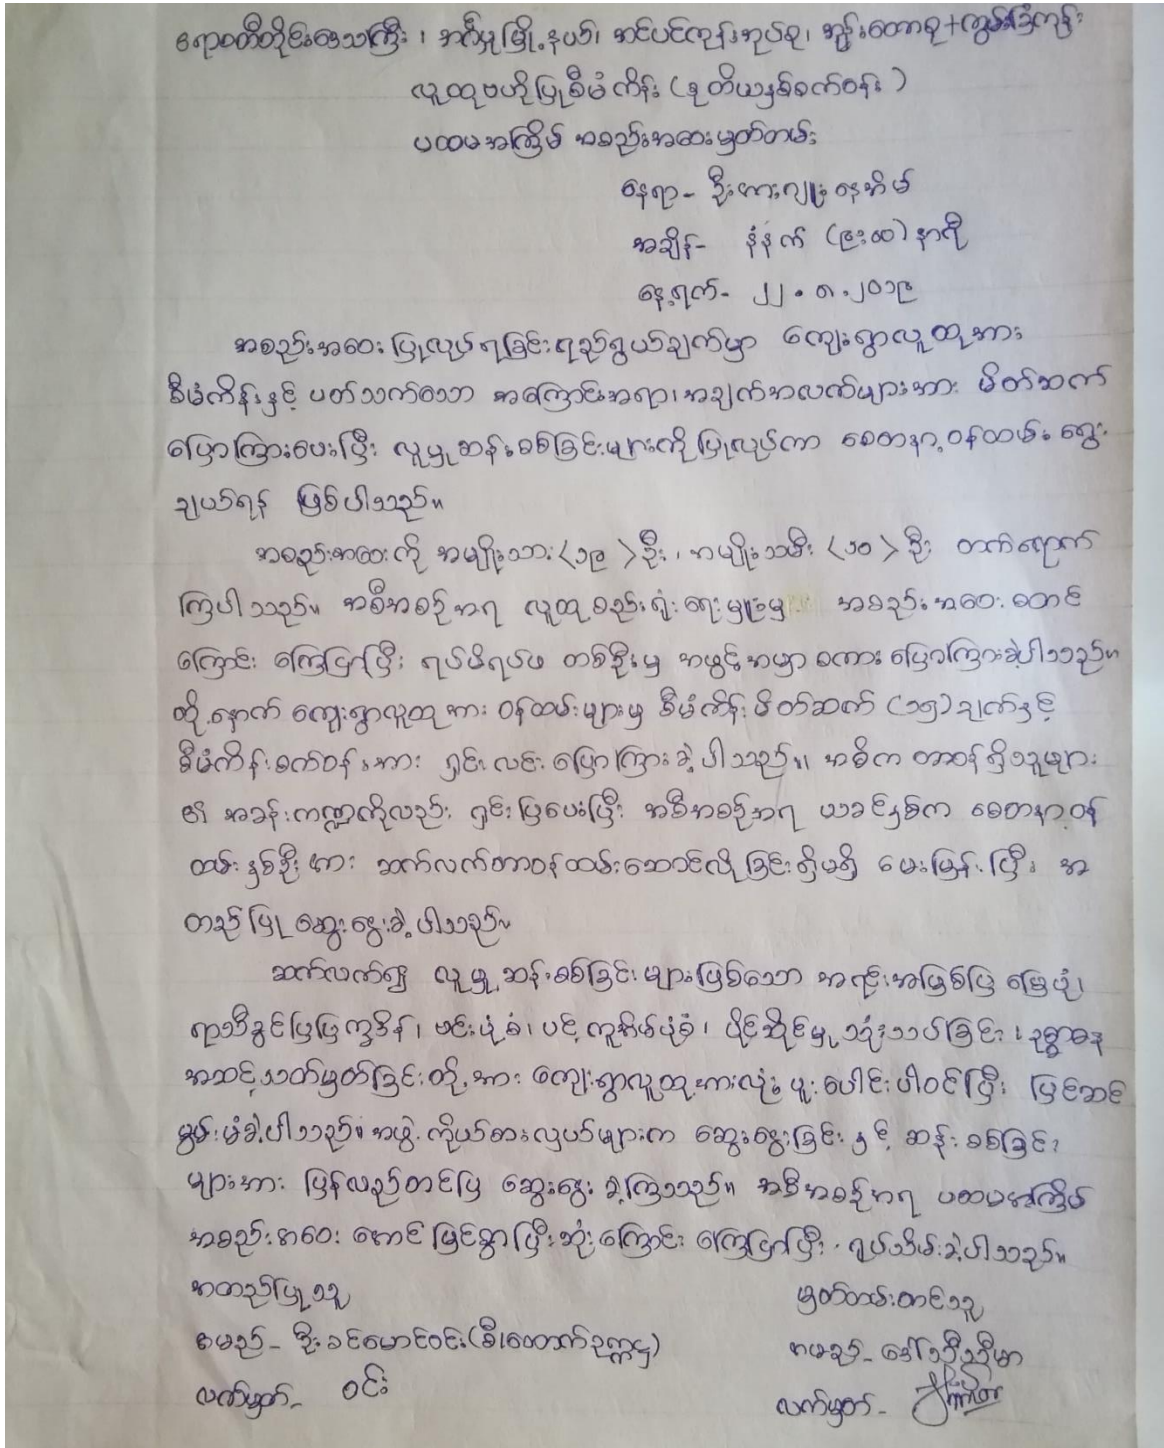 ဧရာဝတီတိုင်းဒေသကြီး ၊ အင်္ဂပူမြို့နယ်၊ ဆင်ပင်ကုန်းအုပ်စု၊ အုန်းတောစု+ကျွမ်းခြံကုန်း
လူထုဗဟိုပြုစီမံကိန်း (ဒုတိယနှစ်စက်ဝန်း)
ပထမအကြိမ် အစည်းအဝေးမှတ်တမ်း
နေရာ- ဦးအားဂျူးနေအိမ်
အချိန်- နံနက် (၉း၀၀) နာရီ
နေ့ရက်- ၂၂.၈.၂၀၁၉
အစည်းအဝေးပြုလုပ်ရခြင်းရည်ရွယ်ချက်မှာ ကျေးရွာလူထုအား
စီမံကိန်းနှင့် ပတ်သက်သော အကြောင်းအရာ၊အချက်အလက်များအား မိတ်ဆက်
ပြောကြားပေးပြီး လူမှုဆန်းစစ်ခြင်းများကိုပြုလုပ်ကာ စေတနာ့ဝန်ထမ်း ရွေး
ချယ်ရန် ဖြစ်ပါသည်။
အစည်းအဝေးကို အမျိုးသား<၁၉>ဦး၊ အမျိုးသမီး <၁၀>ဦး တက်ရောက်
ကြပါသည်။ အစီအစဉ်အရ လူထုစည်းရုံးရေးမှူးမှ အစည်းအဝေးစတင်
ကြောင်း ကြေငြာပြီး ရပ်မိရပ်ဖ တစ်ဦးမှ အဖွင့်အမှာစကား ပြောကြားခဲ့ပါသည်။
ထို့နောက် ကျေးရွာလူထုအား ဝန်ထမ်းများမှ စီမံကိန်းမိတ်ဆက် (၁၅)ချက်နှင့်
စီမံကိန်းစက်ဝန်းအား ရှင်းလင်းပြောကြားခဲ့ပါသည်။ အဓိက တာဝန်ရှိသူများ
၏ အခန်းကဏ္ဍကိုလည်း ရှင်းပြပေးပြီး အစီအစဉ်အရ ယခင်နှစ်က စေတနာ့ဝန်
ထမ်းနှစ်ဦးအား ဆက်လက်တာဝန်ထမ်းဆောင်လိုခြင်းရှိမရှိ မေးမြန်းပြီး အ
တည်ပြု ဆွေးနွေးခဲ့ပါသည်။
ဆက်လက်၍ လူမှုဆန်းစစ်ခြင်းများဖြစ်သော အရင်းအမြစ်ပြမြေပုံ၊
ရာသီခွင်ပြပြက္ခဒိန်၊ ဗင်းပုံစံ၊ ပင့်ကူအိမ်ပုံစံ၊ ပိုင်ဆိုင်မှုသုံးသပ်ခြင်း၊ ဥစ္စာဓန
အဆင့်သတ်မှတ်ခြင်းတို့အား ကျေးရွာလူထုအားလုံး ပူးပေါင်းပါဝင်ပြီး ပြင်ဆင်
မွမ်းမံခဲ့ပါသည်။ အဖွဲ့ကိုယ်စားလှယ်များက ဆွေးနွေးခြင်းနှင့် ဆန်းစစ်ခြင်း
များအား ပြန်လည်တင်ပြ ဆွေးနွေးခဲ့ကြသည်။ အစီအစဉ်အရ ပထမအကြိမ်
အစည်းအဝေး အောင်မြင်စွာပြီးဆုံးကြောင်း ကြေငြာပြီး ရုပ်သိမ်းခဲ့ပါသည်။
အတည်ပြုသူ မှတ်တမ်းတင်သူ
အမည်- ဦးခင်မောင်ဝင်း(စီ၊ထောက်ဥက္ကဋ္ဌ) အမည်- ဒေါ်ညီညီမာ
လက်မှတ်- ဝင်း လက်မှတ်-